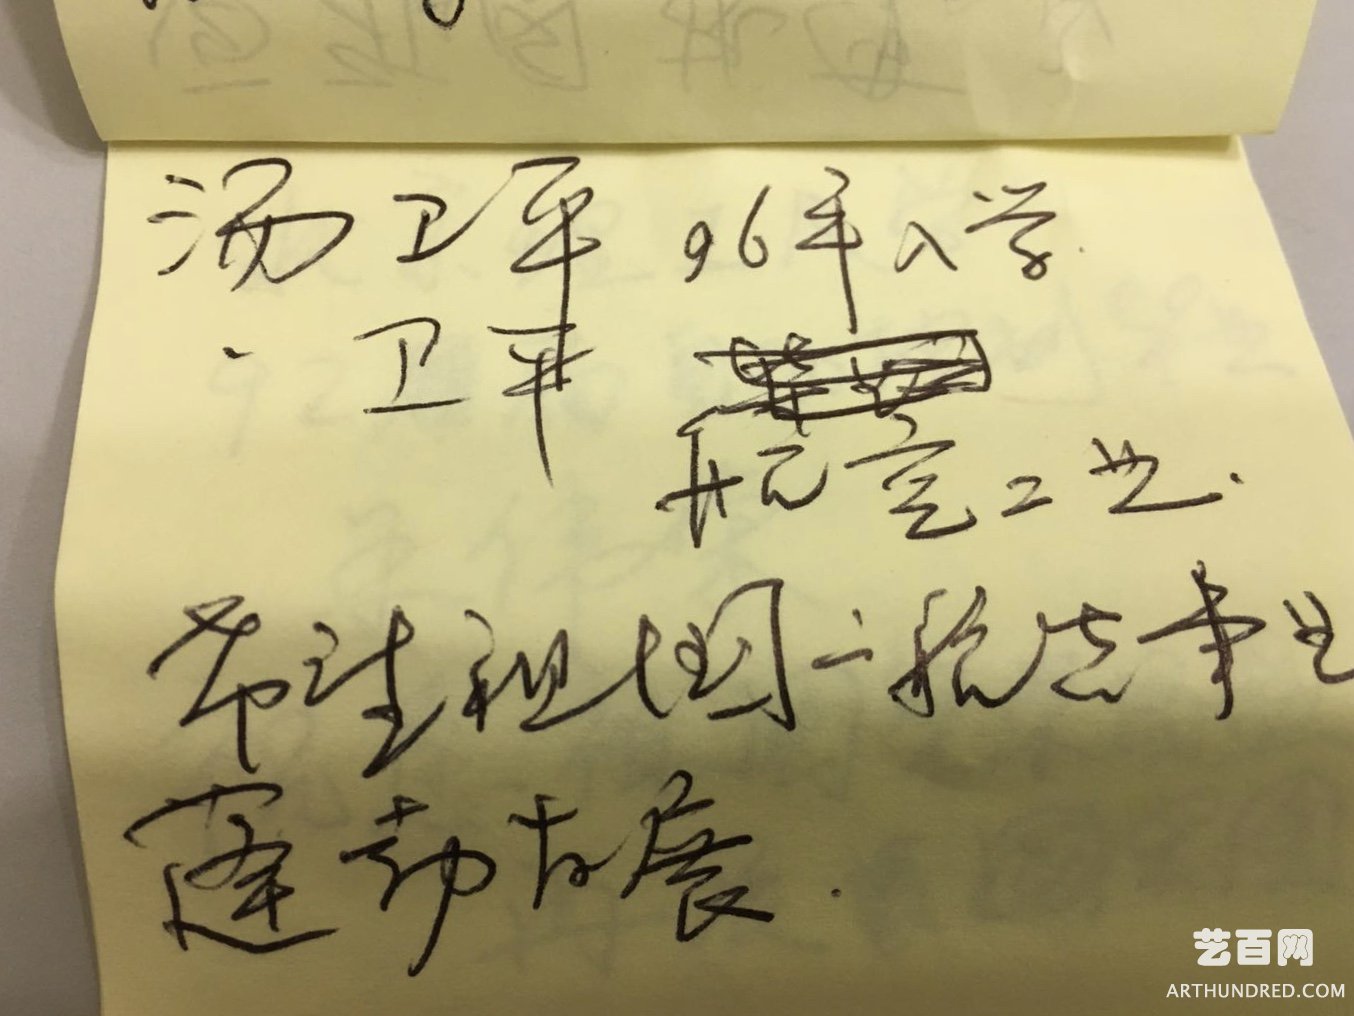 汤卫平 96年入学.
卫平
航空工业.
希望祖国航空事业
蓬勃发展.
艺百网
ARTHUNDRED.COM